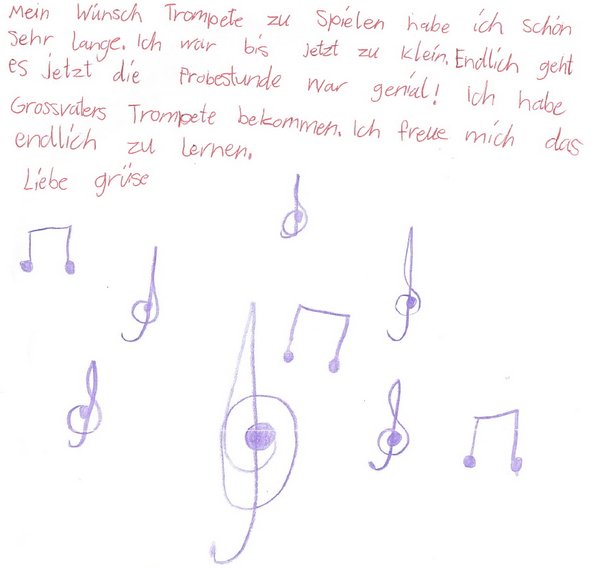 Mein Wünsch Trompete zu Spielen habe ich schön
Sehr lange. Ich war bis Jetzt zu Klein. Endlich geht
es jetzt die Probestunde war genial! Ich habe
Grossvaters Trompete bekommen. Ich freue mich das
endlich zu lernen.
Liebe grüse